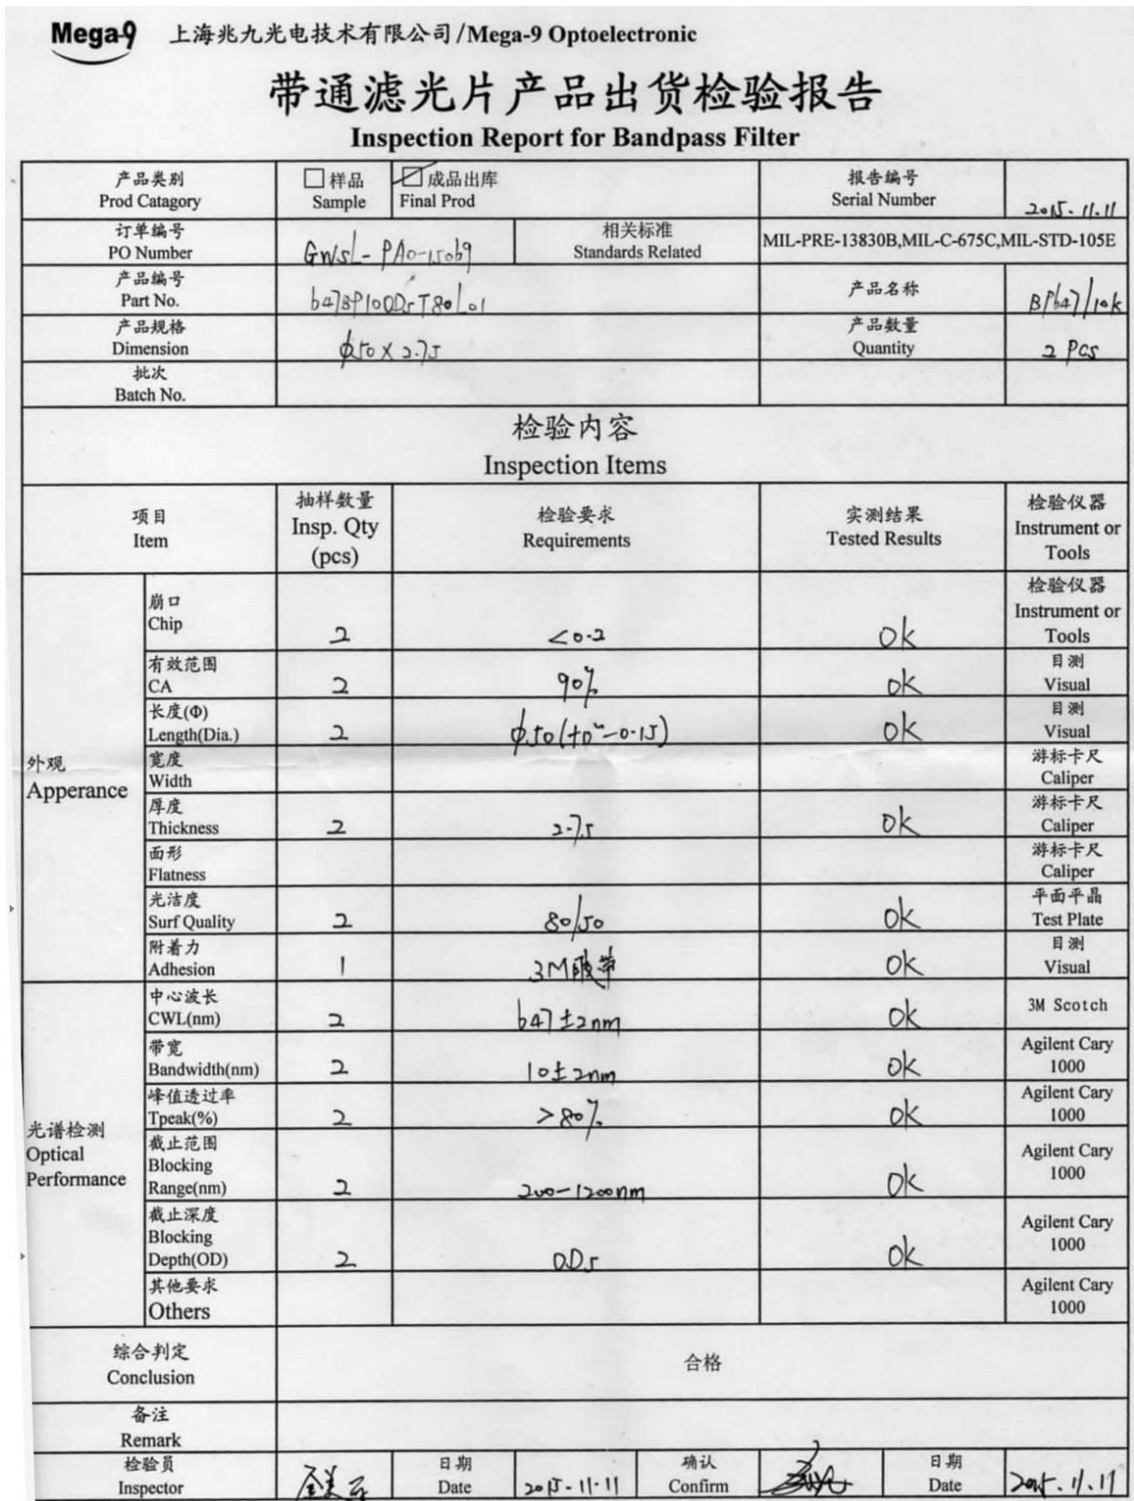 Mega-9 上海兆九光电技术有限公司/Mega-9 Optoelectronic
带通滤光片产品出货检验报告
Inspection Report for Bandpass Filter
产品类别
Prod Catagory
样品
Sample
成品出库
Final Prod
报告编号
Serial Number
2015.11.11
订单编号
PO Number
GWSL-PA0-15069
相关标准
Standards Related
MIL-PRE-13830B,MIL-C-675C,MIL-STD-105E
产品编号
Part No.
647BP10OD5T80L01
产品名称
BP647/10k
产品规格
Dimension
φ50×2.75
产品数量
Quantity
2 pcs
批次
Batch No.
检验内容
Inspection Items
项目
Item
抽样数量
Insp. Qty
(pcs)
检验要求
Requirements
实测结果
Tested Results
检验仪器
Instrument or
Tools
外观
Apperance
崩口
Chip
2
<0.2
OK
检验仪器
Instrument or
Tools
有效范围
CA
2
90%
OK
目测
Visual
长度(Φ)
Length(Dia.)
2
φ50(+0~-0.15)
OK
目测
Visual
宽度
Width
游标卡尺
Caliper
厚度
Thickness
2
2.75
OK
游标卡尺
Caliper
面形
Flatness
游标卡尺
Caliper
光洁度
Surf Quality
2
80/50
OK
平面平晶
Test Plate
附着力
Adhesion
1
3M胶带
OK
目测
Visual
光谱检测
Optical
Performance
中心波长
CWL(nm)
2
647±2nm
OK
3M Scotch
带宽
Bandwidth(nm)
2
10±2nm
OK
Agilent Cary
1000
峰值透过率
Tpeak(%)
2
>80%
OK
Agilent Cary
1000
截止范围
Blocking
Range(nm)
2
200-1200nm
OK
Agilent Cary
1000
截止深度
Blocking
Depth(OD)
2
OD5
OK
Agilent Cary
1000
其他要求
Others
Agilent Cary
1000
综合判定
Conclusion
合格
备注
Remark
检验员
Inspector
日期
Date
2015-11-11
确认
Confirm
日期
Date
2015.11.11